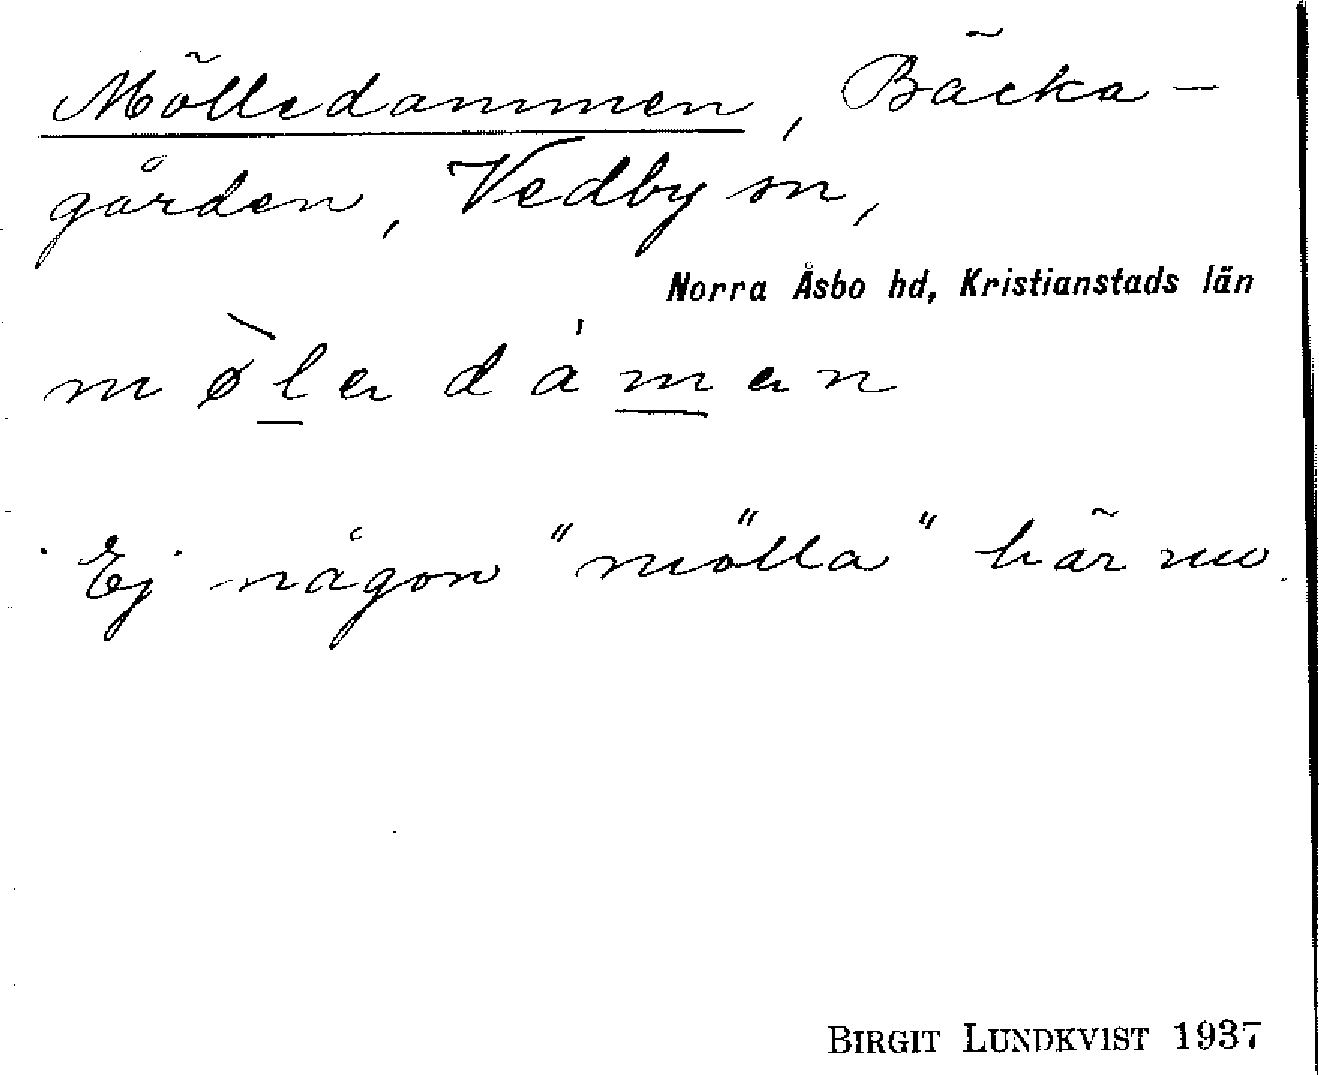 Mölledammen, Bäcka-
gården, Vedby sn,
Norra Åsbo hd, Kristianstads län
mø̀lər dámən
Ej någon "mölla" här nu.
BIRGIT LUNDKVIST 1937